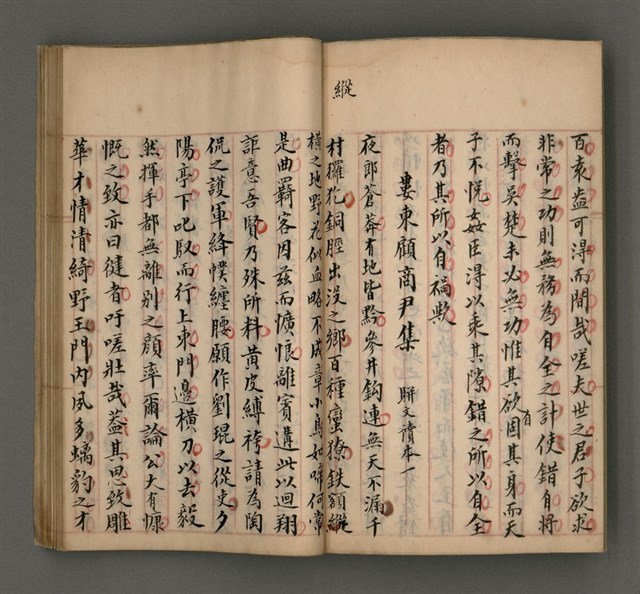 縱
百袁盎可得而間哉嗟夫世之君子欲求
非常之功則無務為自全之計使錯自將
而擊吳楚未必無功惟其欲自固其身而天
子不悅姦臣得以乘其隙錯之所以自全
者乃其所以自禍歟
婁東顧商尹集 駢文讀本一
夜郎蒼莽有地皆黔參井鈎連無天不漏千
村玀犵銅脛出沒之鄉百種蠻獠鉄額縱
橫之地野花似血略不成章小鳥如啼何常
是曲羇客因茲而懭悢離賓遘此以迴翔
詎意吾賢乃殊所料黃皮縛袴請為陶
侃之護軍絳幞纏腰願作劉琨之從史夕
陽亭下叱馭而行上東門邊橫刀以去毅
然揮手都無離別之顏率爾論公大有慷
慨之致亦曰健者吁嗟壯哉蓋其思致雕
華才情清綺野王門內夙多螭豹之才